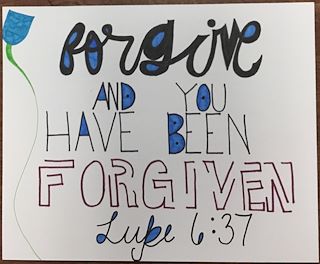 forgive
AND YOU
HAVE BEEN
FORGIVEN
Luke 6:37